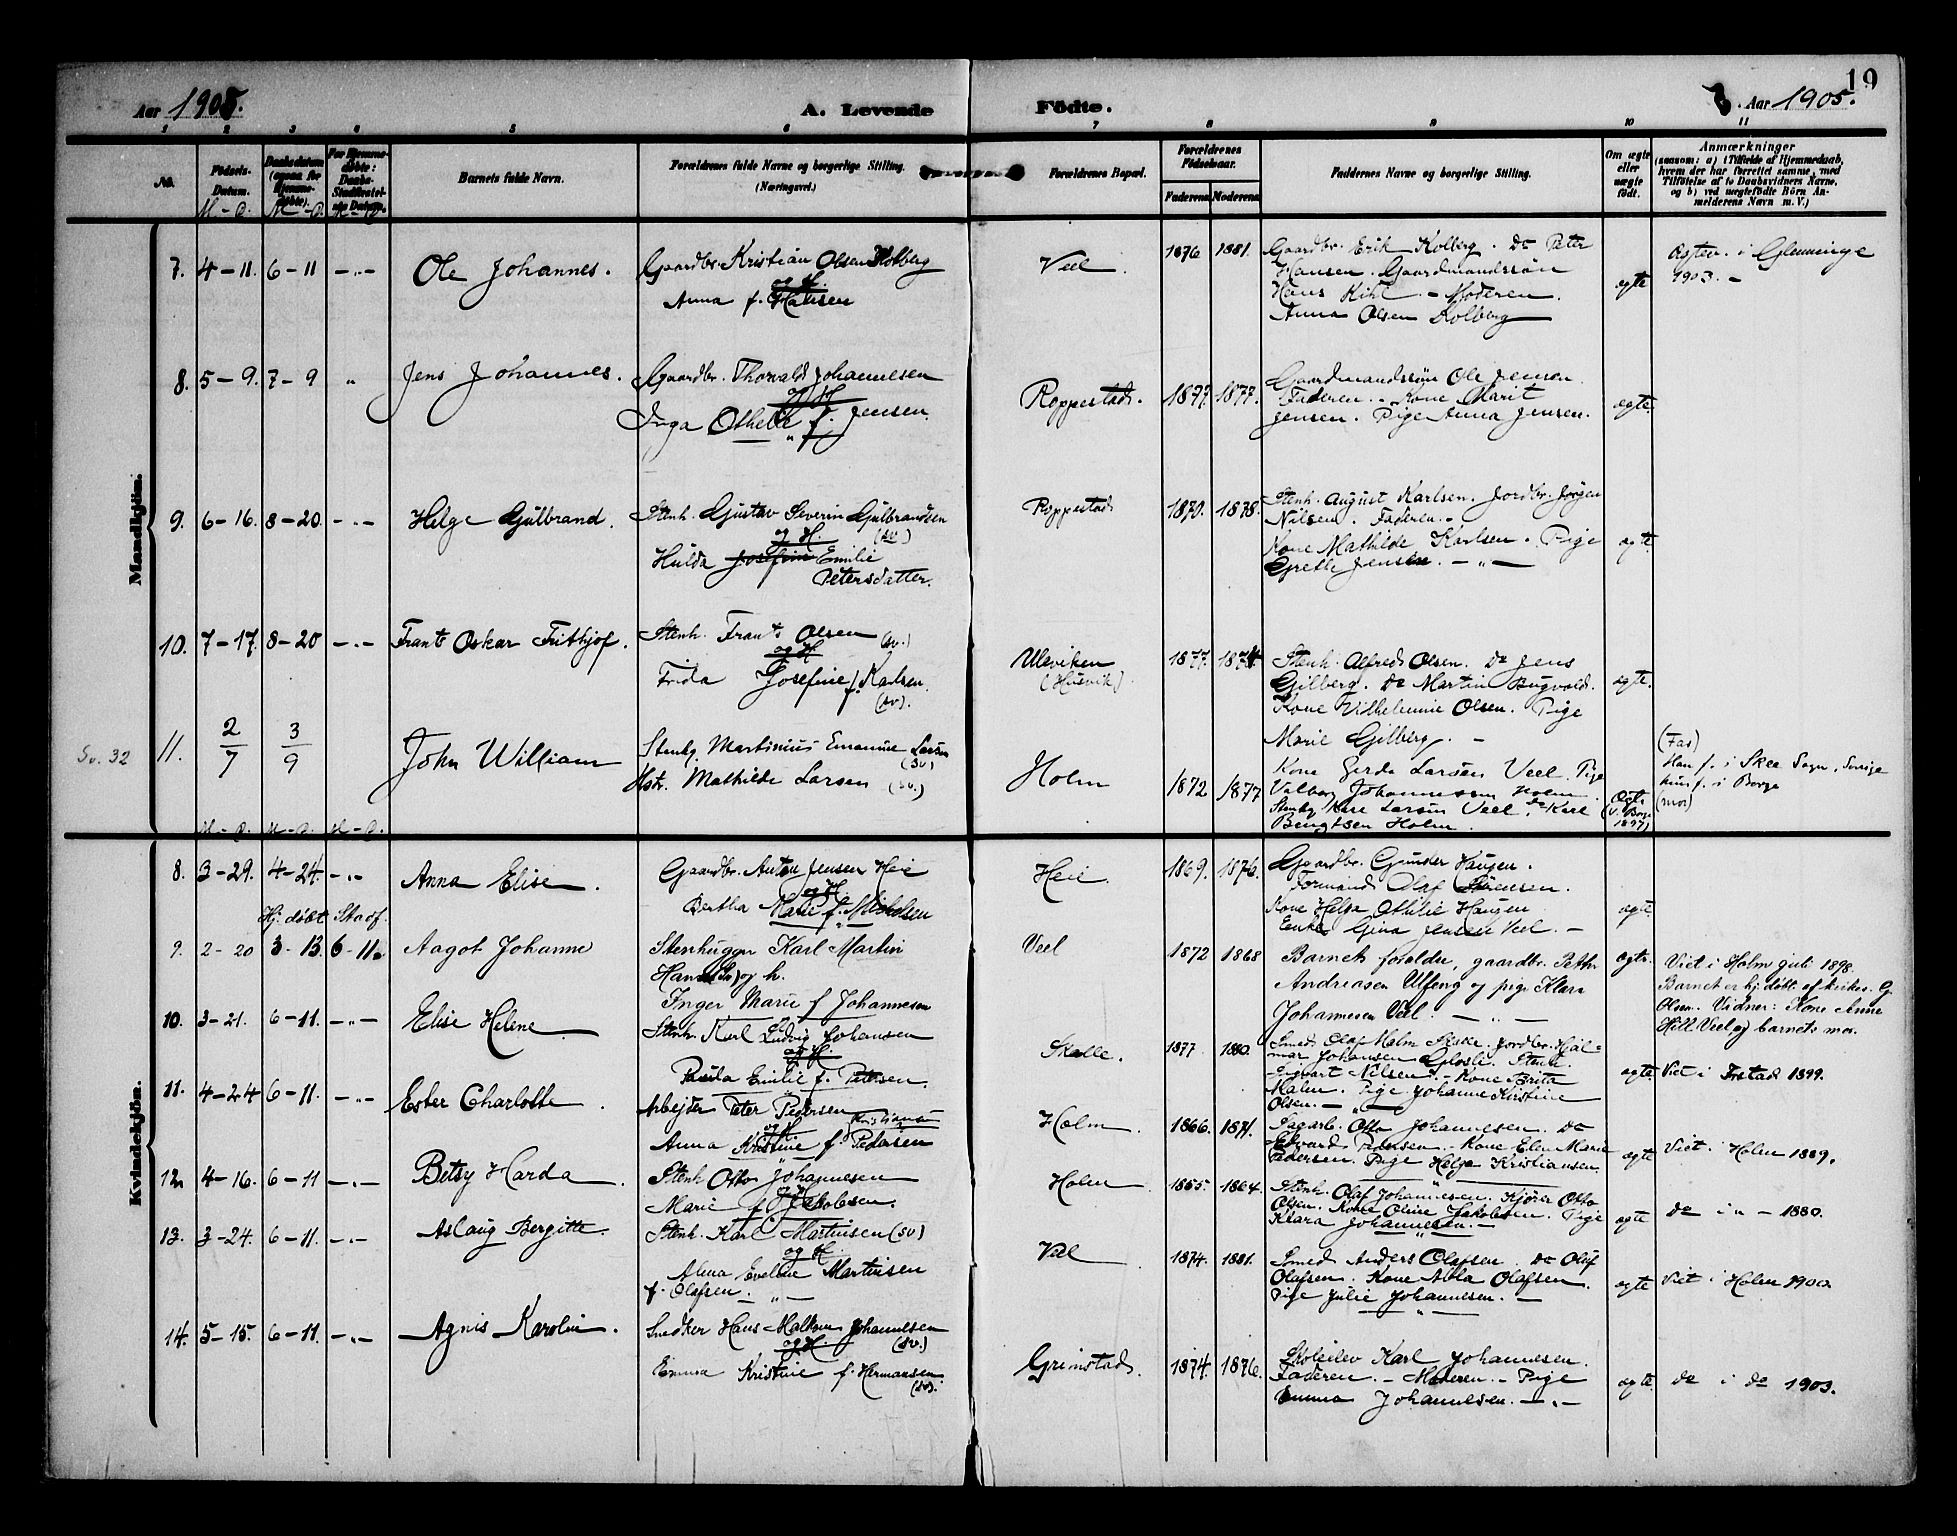 19
Aar 1905. A. Levende Födte. Aar 1905.
1 2 3 4 5 6 7 8 9 10 11
No. Födsels-Datum. Daabsdatum (ogsaa for Hjemme-döbte). For Hjemme-döbte: Daabs-Stadfæstel-sens Datum. Barnets fulde Navn. Forældrenes fulde Navne og borgerlige Stilling. (Næringsvei.) Forældrenes Bopæl. Forældrenes Födselsaar. Faderens Moderens Faddernes Navne og borgerlige Stilling. Om ægte eller uægte födt. Anmærkninger
(saasom: a) i Tilfælde af Hjemmedaab, hvem der har forrettet samme, med Tilföielse af to Daabsvidners Navne, og b) ved uægtefödte Börn An-melderens Navn m. V.)
M - D. M - D. M - D.
Mandkjön.
7. 4-11. 6-11 -„- Ole Johannes. Gaardbr. Kristian Olsen Kolberg
og H.
Anna f. Hansen
Veel. 1876 1881. Gaardbr. Erik Kolberg. Do Peter
Hansen. Gaardmandssön
Hans Kihl - Moderen.
Anna Olsen Kolberg
ægte
Ægtev. i Glemminge
1903. -
8. 5-9. 7-9 „ Jens Johannes. Gaardbr. Thorvald Johannesen
og H
Inga Othelie f. Jensen.
Roppestad. 1877. 1877. Gaardmandssön Ole Jensen.
Faderen. - Kone Marit
Jensen. Pige Anna Jensen.
ægte.
9. 6-16. 8-20. -„- Helge Gulbrand. Stenh. Gustav Severin Gulbrandsen
og H. (sv.)
Hulda Josefine Emilie
Petersdatter.
Roppestad 1870. 1878. Stenh. August Karlsen. Jordbr. Jörgen
Nilsen. Faderen. -
Kone Mathilde Karlsen. Pige
Grethe Jensen. -„-
ægte.
10. 7-17. 8-20 -„- Frants Oskar Frithjof. Stenh. Frants Olsen (sv.)
og H
Frida Josefine f. Karlsen.
(sv).
Ulsviken
(Husvik). 1877. 1874 Stenh. Alfred Olsen. Do Jens
Gilberg. Do Martin Bugvald.
Kone Vilhelmine Olsen. Pige
Marie Gilberg. -
ægte.
Sv. 32 11. 2/7 3/9 John William Stenhg. Martinius Emanuel Larsen
(sv)
Hstr. Mathilde Larsen (sv.)
Holm 1872 1877 Kone Gerda Larsen Veel. Pige
Valborg Johannessen Holm
Stenhg Kare Larsen Veel. do Karl
Bengtsen Holm.
Ægte
(v. Borge
1897)
(Far)
Han f. i Skee Sogn, Sverige
hun f. i Borge
(mor)
M - D. M - D. M - D.
Kvindekjön.
8. 3-29. 4-24. -„- Anna Elise. Gaardbr. Anton Jensen Heie
og H
Bertha Marie f. Nicholsen
Heie. 1869. 1876. Gaardbr. Gunder Haugen.
Formand Olaf Sörensen.
Kone Helga Othilie Haugen
Enke Gina Jensen Veel. -
ægte
Hj. döbt Stadf.
9. 2-20 3-13. 6-11. Aagot Johanne Stenhugger Karl Martin
Hansen (sv) og h.
Inger Marie f Johannesen
Veel 1872 1868 Barnets forældre, gaardbr. Petter
Andreasen Ulfeng og pige Klara
Johannesen Veel. -„-
ægte.
Viet i Holm juli 1898.
Barnet er hj. döbt af kirkes. G.
Olsen. Vidner: Kone Anne
Hill Veel og barnets mor.
10. 3-21. 6-11. -„- Elise Helene Stenh. Karl Ludvig Johansen
og H.
Paula Emilie f. Petersen.
Skolle. 1877 1880. Smed Olaf Malm Skolle. Jordbr. Hjal-
mar Johansen Glosli. Stenh.
Ingvart Nilsen. - Kone Brita
Malm. Pige Johanne Kirstine
Olsen. -„-
ægte Viet i Idd 1899.
11. 4-24 6-11. -„- Ester Charlotte. Arbejder Peter Pedersen
og H Kristiansen
Anna Kristine f. Pedersen
Holm. 1866. 1871. Sagarb. Otto Johannesen. Do
Edvard Pedersen. - Kone Elen Marie
Pedersen. Pige Helga Kristiansen
ægte Viet i Holm 1889.
12. 4-16. 6-11 -„- Betsy Harda. Stenh Otto Johannesen
og H
Marie f. Jakobsen.
Holm 1865. 1864. Stenh. Olaf Johannesen. Kjörer Otto
Olsen. Kone Oline Jakobsen. Pige
Klara Johannesen. -
ægte do i „ - 1880.
13. 3-24. 6-11. -„- Aslaug Bergitte. Stenh. Karl Martinsen (sv)
og H.
Alma Eveline Martinsen
f. Olafsen. -„-
Veel 1874. 1881. Smed Anders Olafsen. Do Olaf
Olafsen. Kone Abla Olafsen
Pige Julie Johannesen. -
ægte Viet i Holm 1900.
14. 5-15. 6-11. -„- Agnis Karolin. Snedker Hans Malkom Johannesen
og H. (sv.)
Emma Kristine f. Hermansen.
(sv).
Grimstad. 1874. 1876. Skoleelev Karl Johannesen.
Faderen. - Moderen. - Pige
Emma Johannesen. -„-
ægte. do i do 1903.